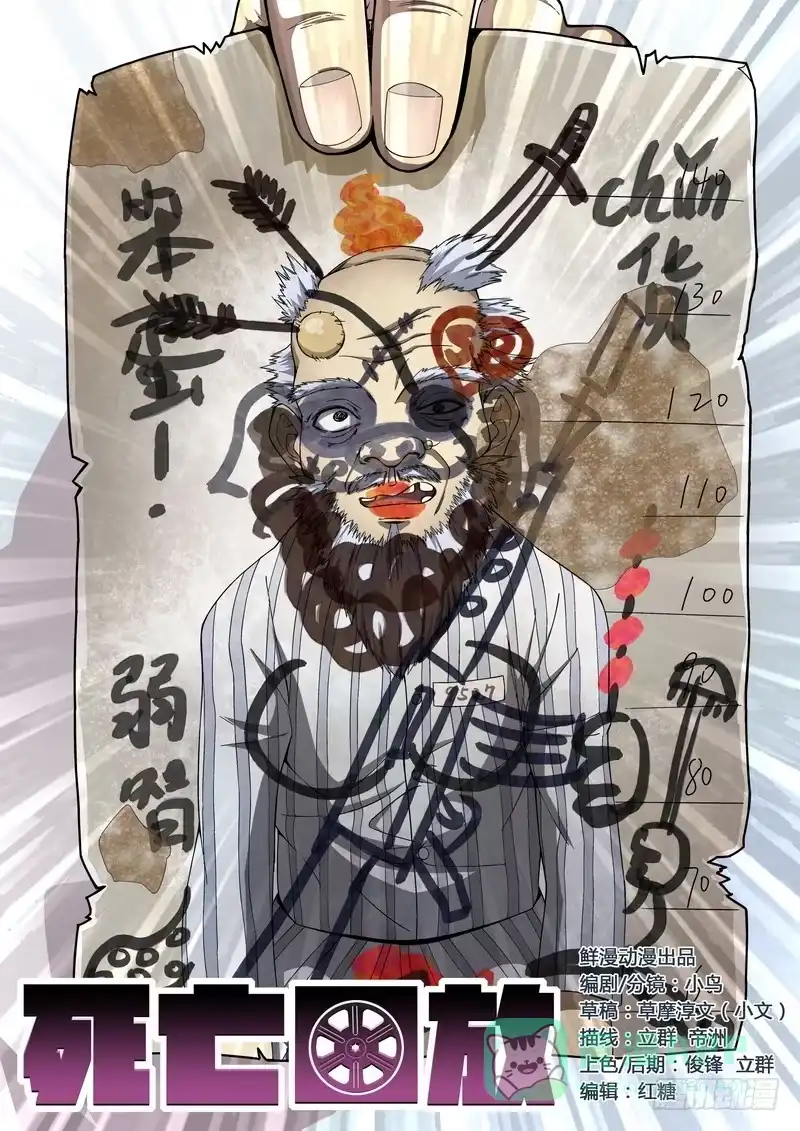 笨蛋！
chǔn
货
140
130
120
110
100
90
80
70
弱智
9527
死亡回放
鲜漫动漫出品
编剧/分镜：小鸟
草稿：草摩淳文（小文）
描线：立群 帝洲
上色/后期：俊锋 立群
编辑：红糖